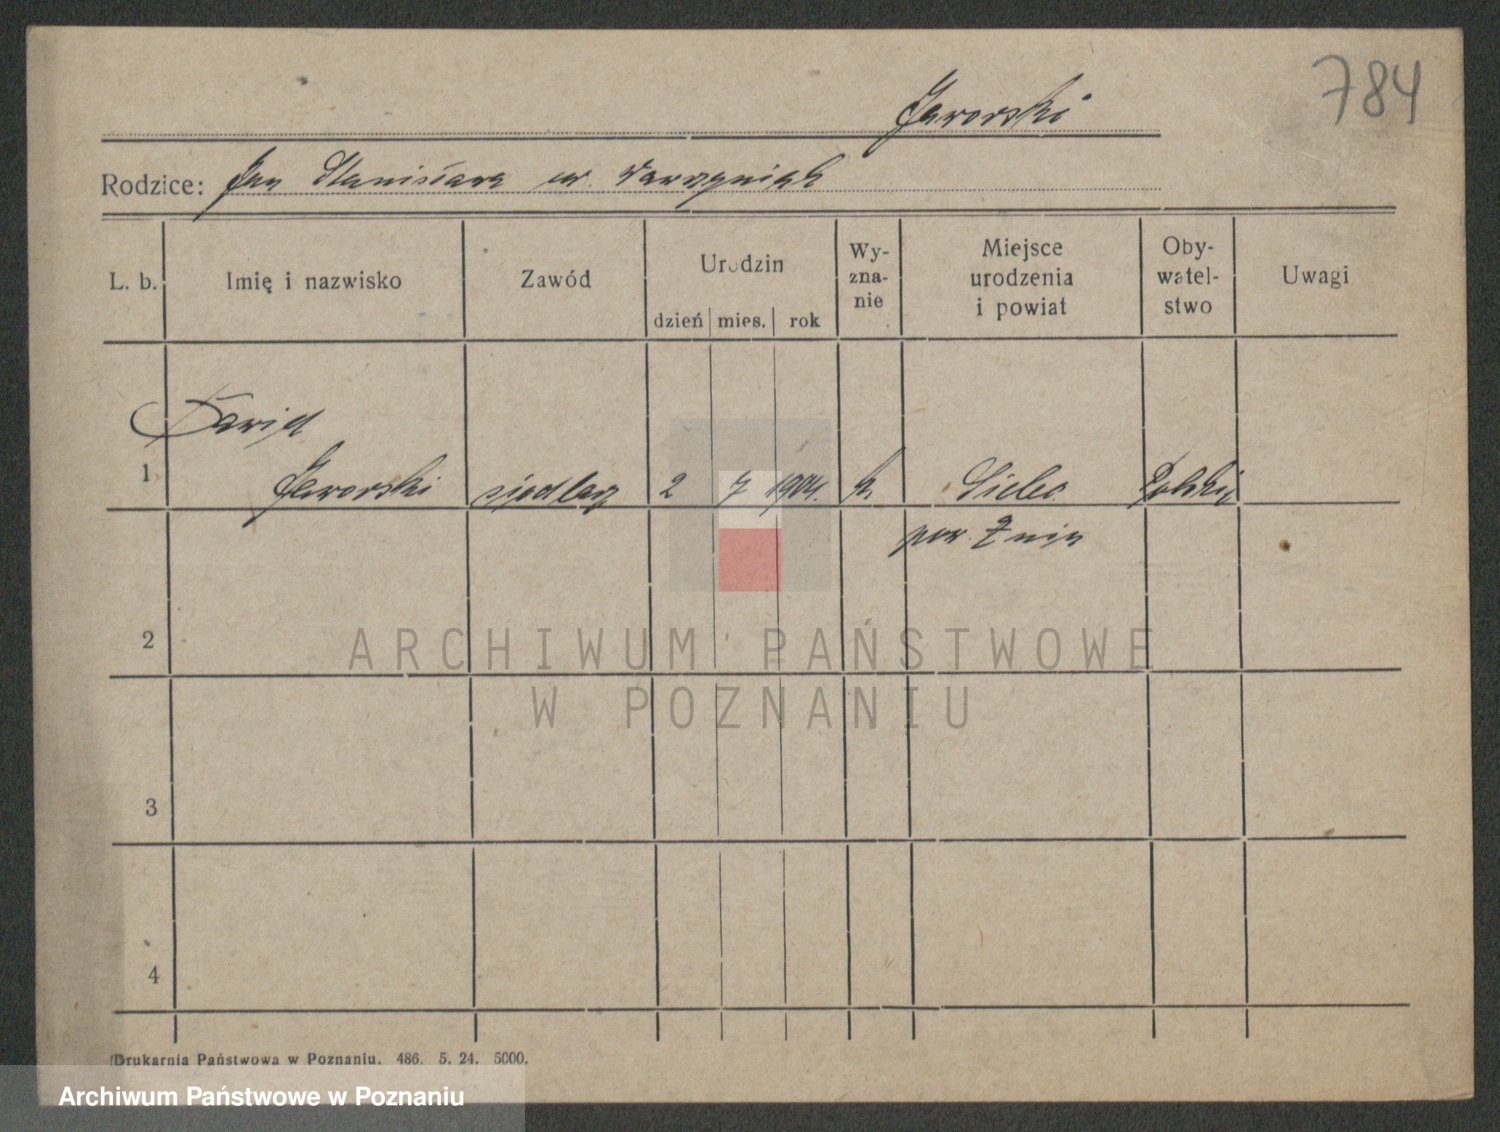 784
Jaworski
Rodzice: Jan Stanisława ur. Wawrzyniak
L. b.
Imię i nazwisko
Zawód
Urodzin
dzień mies. rok
Wy-
zna-
nie
Miejsce
urodzenia
i powiat
Oby-
watel-
stwo
Uwagi
Dawid
1 Jaworski siodlarz 2 7 1904. k. Sielec
pow. Żnin
2
3
4
ARCHIWUM PAŃSTWOWE
W POZNANIU
Drukarnia Państwowa w Poznaniu. 486. 5. 24. 5000.
Archiwum Państwowe w Poznaniu